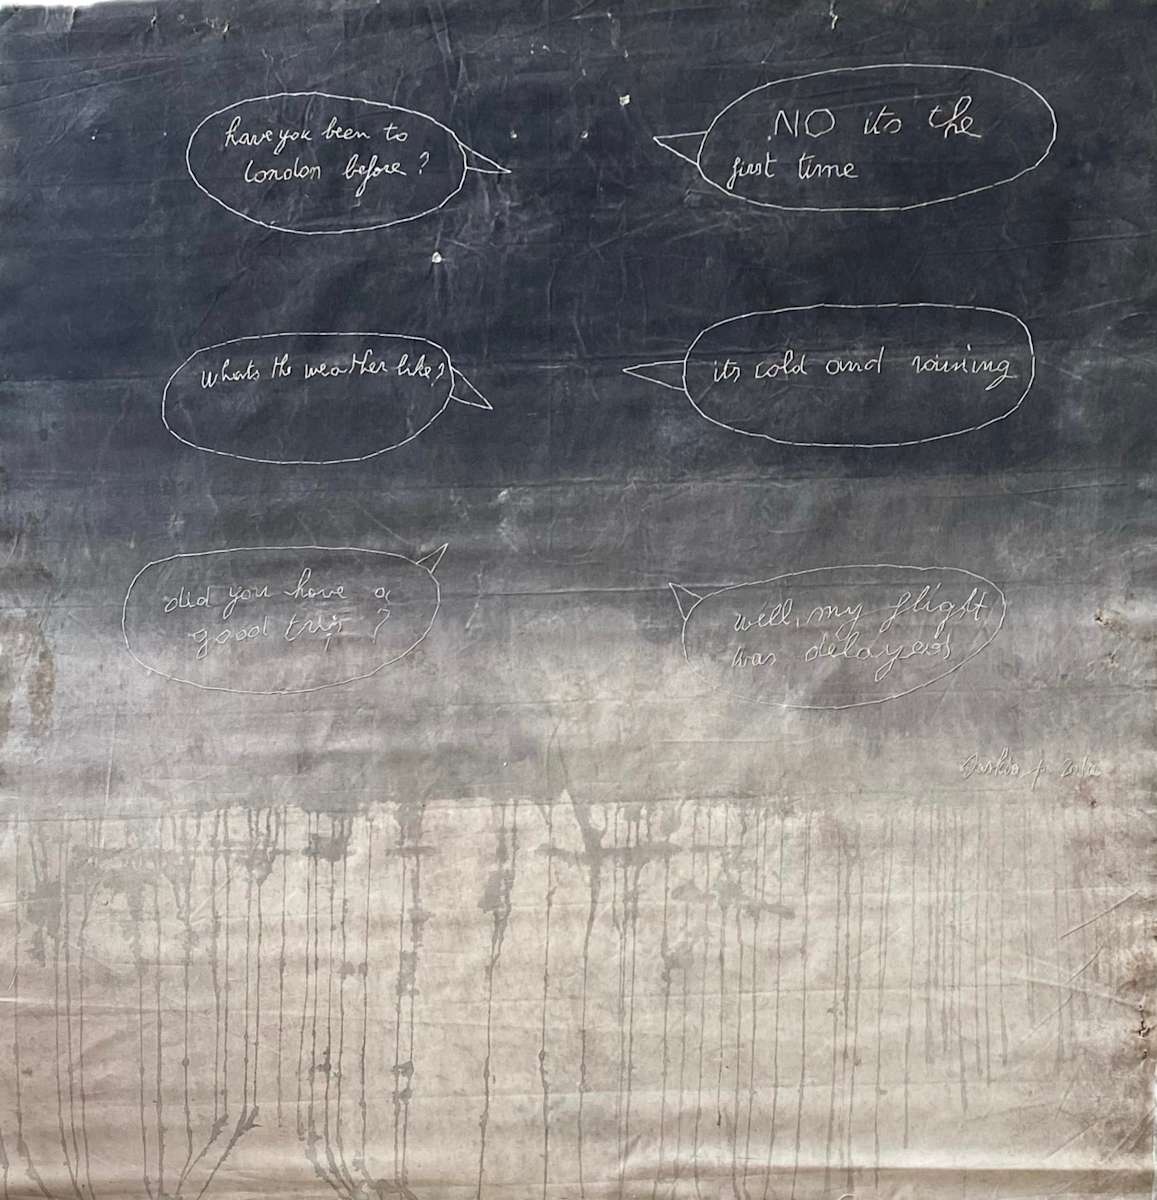 have you been to
London before?
NO its the
first time
whats the weather like?
its cold and raining
did you have a
good trip?
well, my flight
was delayed